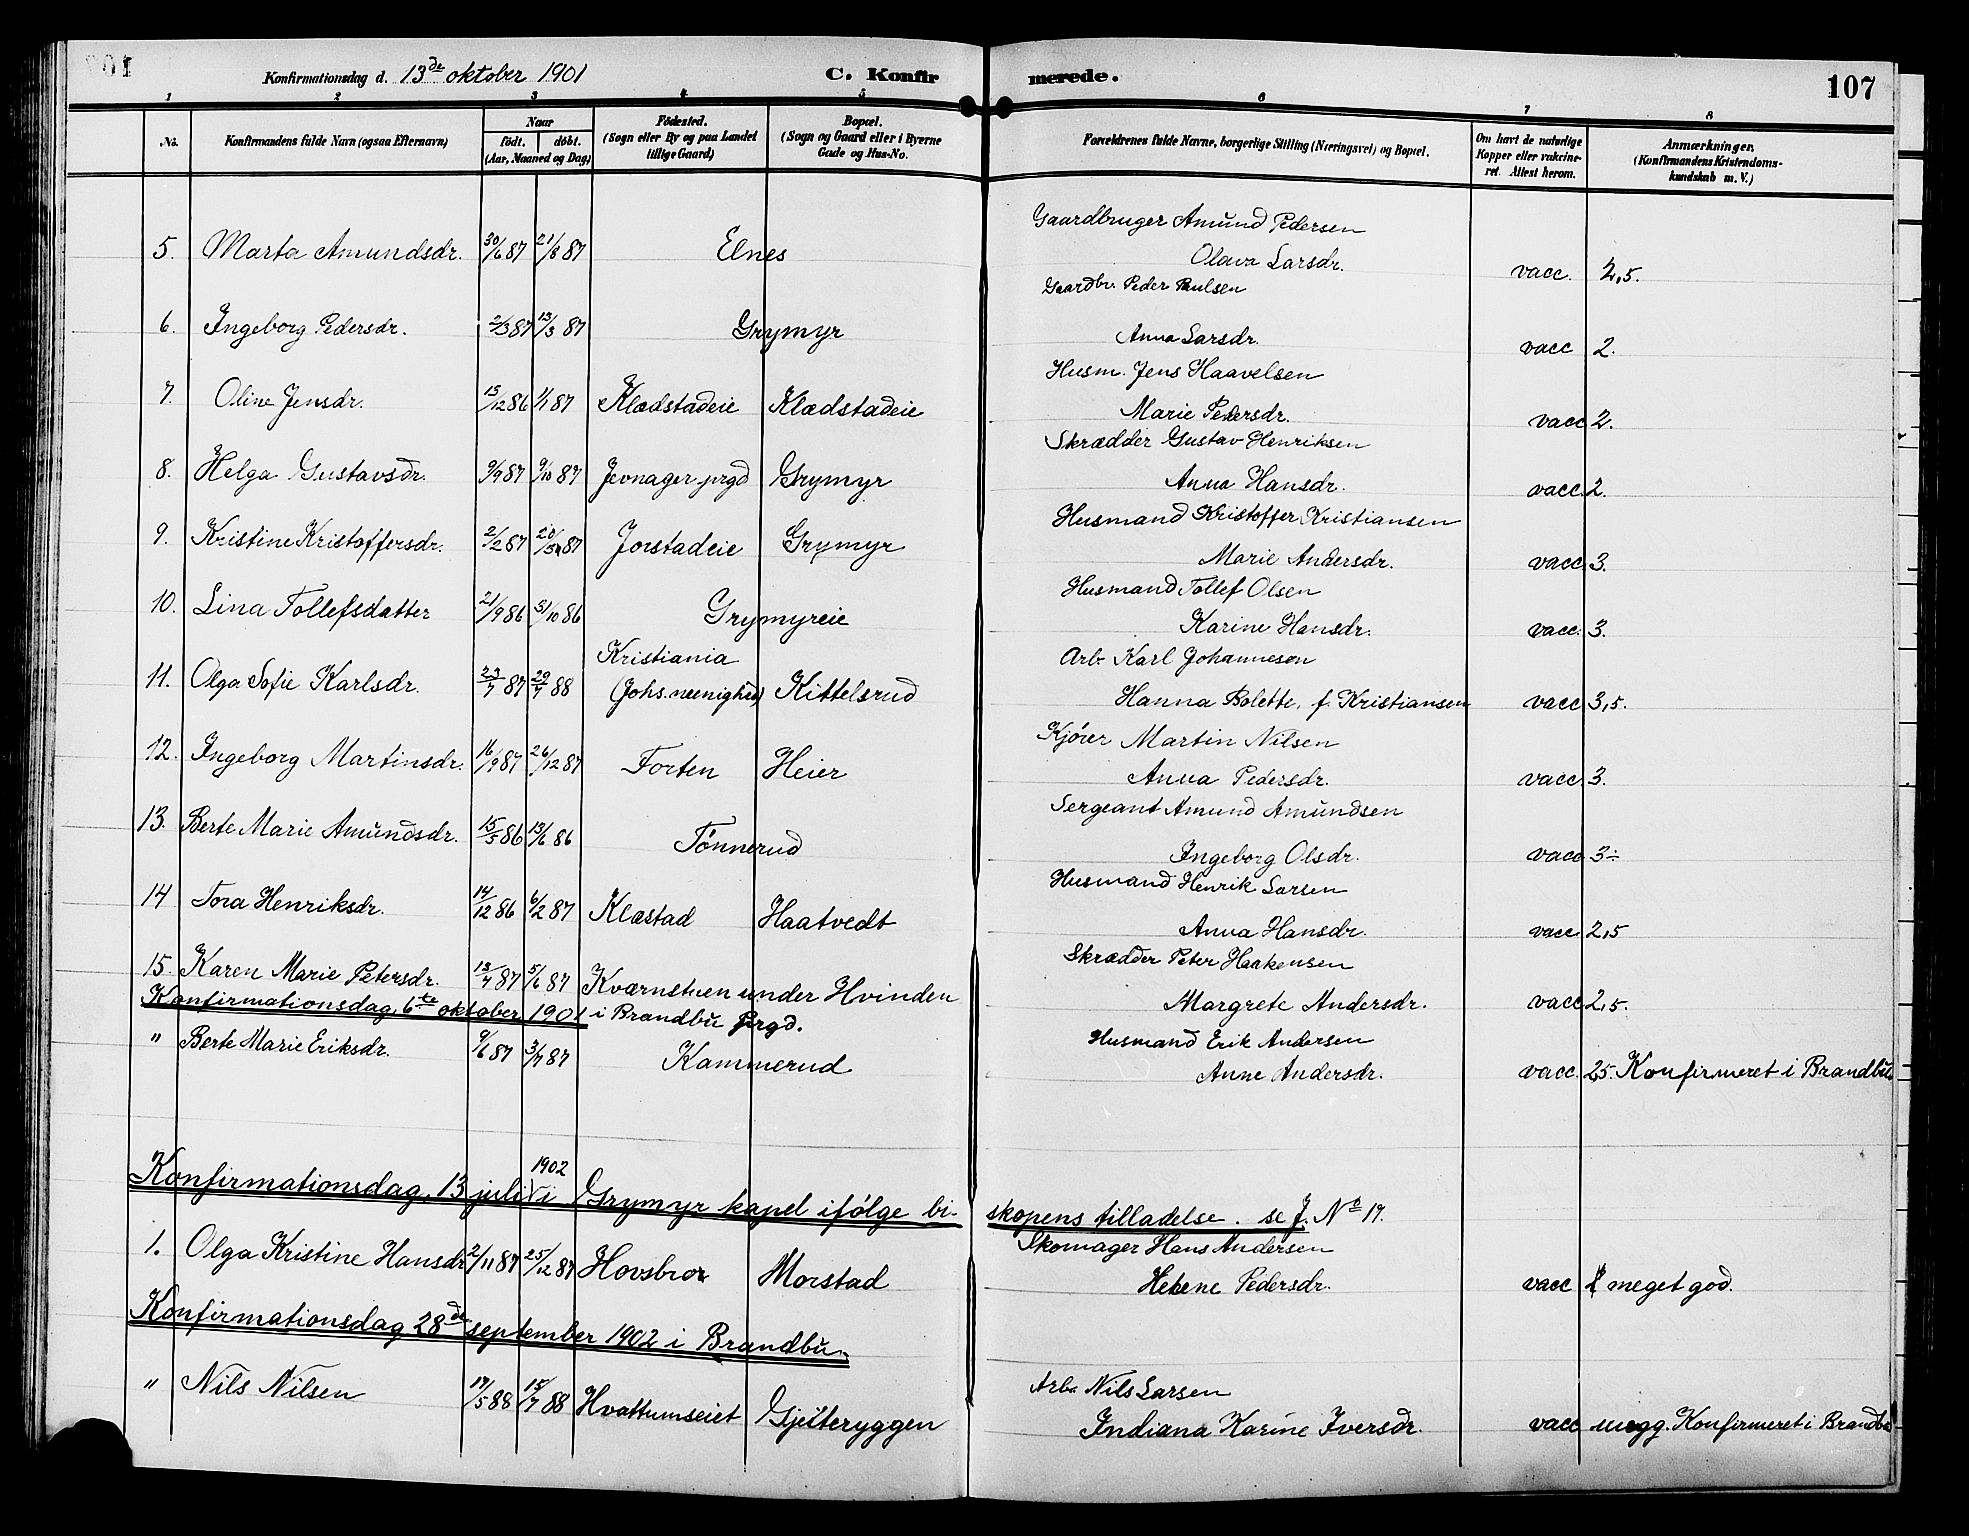 Konfirmationsdag d. 13de oktober 1901 C. Konfirmerede. 107
1 2 3 4 5 6 7 8
No. Konfirmandens fulde Navn (ogsaa Efternavn) Naar født. døbt. (Aar, Maaned og Dag) Fødested. (Sogn eller By og paa Landet tillige Gaard) Bopæl. (Sogn og Gaard eller i Byerne Gade og Hus-No. Forældrenes fulde Navne, borgerlige Stilling (Næringsvei) og Bopæl. Om havt de naturlige Kopper eller vakcineret. Attest herom. Anmærkninger. (Konfirmandens Kristendomskundskab m. V.)
Gaardbruger Amund Pedersen
5. Marta Amundsdr. 30/6 87 21/8 87 Elnes Olava Larsdr. vacc. 2,5.
Gaardbr. Peder Paulsen
6. Ingeborg Pedersdr. 2/3 87 13/3 87 Grymyr Anna Larsdr. vacc 2.
Husm. Jens Haavelsen
7. Oline Jensdr. 15/12 86 1/1 87 Klædstadeie Klædstadeie Marie Pedersdr. vacc 2.
Skrædder Gustav Henriksen
8. Helga Gustavsdr. 9/9 87 9/10 87 Jevnager prgd Grymyr Anna Hansdr. vacc. 2.
Husmand Kristoffer Kristiansen
9. Kristine Kristoffersdr. 2/2 87 20/3 87 Jorstadeie Grymyr Marie Andersdr. vacc. 3.
Husmand Tollef Olsen
10. Lina Tollefsdatter 21/9 86 31/10 86 Grymyreie Karine Hansdr. vacc. 3.
Kristiania Arb. Karl Johannesen
11. Olga Sofie Karlsdr. 23/7 87 29/7 88 (Johs.meenighed) Kittelsrud Hanna Bolette, f. Kristiansen vacc 3,5.
Kjører Martin Nilsen
12. Ingeborg Martinsdr. 16/9 87 26/12 87 Forten Heier Anna Pedersdr. vacc 3.
Sergeant Amund Amundsen
13. Berte Marie Amundsdr. 15/5 86 13/6 86 Tønnerud Ingeborg Olsdr. vacc 3÷
Husmand Henrik Larsen
14 Tora Henriksdr. 14/12 86 6/2 87 Klæstad Haatvedt Anna Hansdr. vacc. 2,5
Skrædder Peter Haakensen
15. Karen Marie Petersdr. 13/4 87 5/6 87 Kværnstuen under Hvinden Margrete Andersdr. vacc 2,5.
Konfirmationsdag 6te oktober 1901 i Brandbu prgd.
Husmand Erik Andersen
" Berte Marie Eriksdr. 9/6 87 3/7 87 Kammerud Anne Andersdr. vacc. 2,5. Konfirmeret i Brandbu
Konfirmationsdag 13 juli 1902 i Grymyr kapel ifølge biskopens tilladelse. se J. No 17.
Skomager Hans Andersen
1. Olga Kristine Hansdr 2/11 87 25/12 87 Hovsbror Morstad Helene Pedersdr. vacc meget god.
Konfirmationsdag 28de september 1902 i Brandbu.
Arb. Nils Larsen
" Nils Nilsen 17/5 88 15/7 88 Hvattumseiet Gjeiteryggen Indiana Karine Iversdr. vacc megg. Konfirmeret i Brandbu